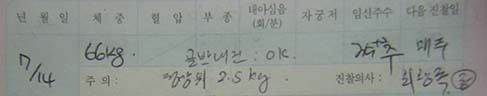 년 월 일 체 중 혈 압 부 종 태아심음 (회/분) 자궁저 임신주수 다음 진찰일
7/14 66kg 골반내진 : OK. 매주
주 의 : 2.5kg. 진찰의사 :